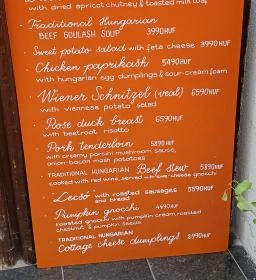 with dried apricot chutney & toasted milk loaf
Traditional Hungarian
BEEF GOULASH SOUP 3990HUF
Sweet potato salad with feta cheese 3990HUF
Chicken paprikash 5490HUF
with hungarian egg dumplings & sour-cream foam
Wiener Schnitzel (veal) 6590HUF
with viennese potato salad
Rose duck breast 6590HUF
with beetroot risotto
Pork tenderloin 5890HUF
with creamy porcini mushroom sauce,
onion-bacon mash potatoes
TRADITIONAL HUNGARIAN Beef stew 5890HUF
cooked with red wine, served with ewe-cheese gnocchi
"Lecsó" with roasted sausages 5590HUF
and bread
Pumpkin gnocchi 4490HUF
roasted gnocchi with pumpkin cream, roasted
chestnut & pumpkin seeds
TRADITIONAL HUNGARIAN
Cottage cheese dumplings 2990HUF